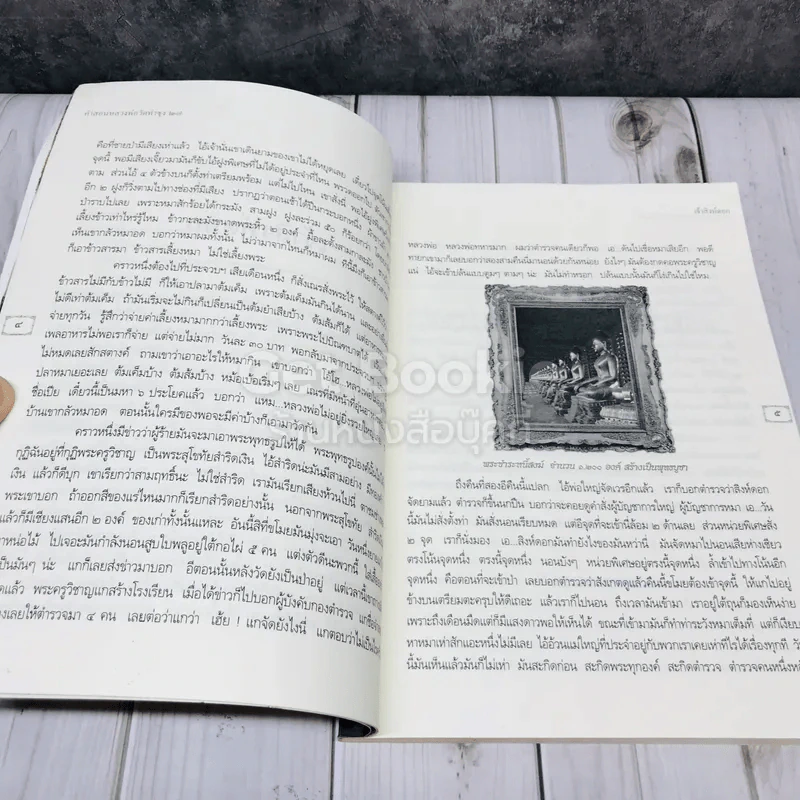 คำสอนหลวงพ่อวัดท่าซุง
คือที่ชายป่ามีเสียงเห่าแล้ว ไอ้เจ้านั่นเขาเดินยามของเขาไม่ได้หยุดเลย
จุดนี้ พอมีเสียงเจี๊ยวมามันก็ขับไอ้ฝูงพิเศษที่ไม่ได้อยู่ประจำที่ไหน
ตาม ส่วนไอ้ ๔ ตัวข้างบนก็ตั้งท่าเตรียมพร้อม แต่ไม่ไปไหน เขาสังนี่
อีก ๒ ฝูงก็วิ่งตามไปทางช่องที่มีเสียง ปรากฏว่าตอนเช้าได้ปืนกระบอกหนึ่ง
ป่าราบไปเลย เพราะหมาสักร้อยได้กระมัง สามฝูง ฝูงละร่วม ๕๐ ก็เรียกว่า
เลี้ยงข้าวเท่าไหร่รู้ไหม ข้าวกะละมังขนาดพระหิ้ว ๒ องค์ มื้อละตั้งสามกะละมัง
เห็นเขากลัวหมาอด บอกว่าหมาผมทั้งนั้น ไม่ว่ามาจากไหนก็หมาผม
ก็เอาข้าวสารมา ข้าวสารเลี้ยงหมา ไม่ใช่เลี้ยงพระ
คราวหนึ่งต้องไปที่ประจวบฯ เสียเดือนหนึ่ง ก็สั่งเณรสั่งพระไว้
ข้าวสารไม่มีกับข้าวไม่มี ก็ให้เอาปลามาต้มเค็ม เพราะต้มเค็มมันกินได้นาน
ไม่ดีเท่าต้มเค็ม ถ้ามันเริ่มจะไม่กินก็เปลี่ยนเป็นต้มยำเสียบ้าง ต้มส้มก็ได้
จ่ายทุกวัน รู้สึกว่าจ่ายค่าเลี้ยงหมามากกว่าเลี้ยงพระ เพราะพระไปบิณฑบาตได้
เพลอาหารไม่พอเราก็จ่าย แต่จ่ายไม่มาก วันละ ๓๐ บาท พอกลับมาจากประจวบ
ไม่หมดเลยสักสตางค์ ถามเขาว่าเอาอะไรให้หมากิน เขาบอก โอ้โฮ..หลวงพ่อ
ปลาหมาเยอะเลย ต้มเค็มบ้าง ต้มส้มบ้าง หม้อเบ้อเริ่มๆ เลย
ชื่อเปีย เดี๋ยวนี้เป็นมหา ๖ ประโยคแล้ว บอกว่า แหม...หลวงพ่อไม่อยู่
บ้านเขากลัวหมาอด ตอนนั้นใครมีของพอจะมีค่าบ้างก็เอามาวัดกัน
คราวหนึ่งมีข่าวว่าผู้ร้ายมันจะมาเอาพระพุทธรูปให้ได้
กุฏิฉันอยู่ที่กุฏิพระครูวิชาญ เป็นพระสุโขทัยสำริดเงิน ไอ้สำริดน่ะมันมีสามอย่าง
เงิน แล้วก็ดีบุก เขาเรียกว่าสามฤทธิ์นะ ไม่ใช่สำริด เรามันเรียกเสียงห้วนไปนี่
พระเขาบอก ถ้าออกสีของแร่ไหนมากก็เรียกสำริดอย่างนั้น นอกจากพระสุโขทัย
แล้วก็มีเชียงแสนอีก ๒ องค์ ของเก่าทั้งนั้นแหละ อันนี้สิที่ขโมยมันมุ่งจะเอา
หน่อไม้ ไปเจอะมันกำลังนอนสูบใบพลูอยู่ใต้กอไผ่ ๕ คน แต่งตัวดีนะพวกนี้
มันๆ น่ะ แกก็เลยส่งข่าวมาบอก อีตอนนั้นหลังวัดยังเป็นป่าอยู่
แล้ว พระครูวิชาญแกสร้างโรงเรียน เมื่อได้ข่าวก็ไปบอกผู้บังคับกองตำรวจ
เลยให้ตำรวจมา ๔ คน เลยต่อว่าแกว่า เฮ้ย ! แกจัดยังไงนี่
๔
เจ้าสิงห์ดอก
หลวงพ่อ หลวงพ่อทหารมาก ผมว่าตำรวจคนเดียวก็พอ เอ..ดันไปเชื่อหมาเสียอีก พอดี
ทายกเขามาก็เลยบอกว่าสองสามคืนนี่มานอนด้วยกันหน่อย ยังไงๆ มันต้องกดคอพระครูวิชาญ
แน่ ไอ้จะเข้าปล้นแบบตูมๆ ตามๆ น่ะ มันไม่ทำหรอก ปล้นแบบนั้นมันก็โง่เกินไปใช่ไหม
พระชำระหนี้สงฆ์ จำนวน ๑,๒๐๐ องค์ สร้างเป็นพุทธบูชา
๕
ถึงคืนที่สองอีคืนนี้แปลก ไอ้พ่อใหญ่จัดเวรอีกแล้ว เราก็บอกตำรวจว่าสิงห์ดอก
จัดยามแล้ว ตำรวจก็ขึ้นนกปืน บอกว่าจะคอยดูคำสั่งผู้บัญชาการใหญ่ ผู้บัญชาการหมา เอ...วัน
นี้มันไม่สั่งตั้งท่า มันสั่งนอนเรียบหมด แต่อีจุดที่จะเข้านี่ล้อม ๒ ด้านเลย ส่วนหน่วยพิเศษสั่ง
๒ จุด เราก็นั่งมอง เอ...สิงห์ดอกมันทำยังไงของมันหว่านี่ มันจัดหมาไปนอนเสียห่างเชียว
ตรงโน้นจุดหนึ่ง ตรงนี้จุดหนึ่ง นอนบังๆ หน่วยพิเศษอยู่ตรงนี้จุดหนึ่ง ล้ำเข้าไปทางโน้นอีก
จุดหนึ่ง คือตอนที่จะเข้าป่า เลยบอกตำรวจว่าสังเกตดูแล้วคืนนี้ขโมยต้องเข้าจุดนี้ ให้แกไปอยู่
ข้างบนเตรียมตะครุบให้ดีเถอะ แล้วเราก็ไปนอน ถึงเวลามันเข้ามา เราอยู่ใต้ถุนก็มองเห็นง่าย
เพราะถึงเดือนมืดแต่ก็มีแสงดาวพอให้เห็นได้ ขณะที่เข้ามามันก็ทำท่าระวังหมาเต็มที่ แต่ก็เงียบ
หาหมาเห่าสักแอะหนึ่งไม่มีเลย ไอ้อ้วนแม่ใหญ่ที่ประจำอยู่กับพวกเราเคยเห่าที่ไรได้เรื่องทุกที วัน
นี้มันเห็นแล้วมันก็ไม่เห่า มันสะกิดก่อน สะกิดพระทุกองค์ สะกิดตำรวจ ตำรวจคนหนึ่ง
Get Booki
ร้านหนังสือบุ๊คกี้